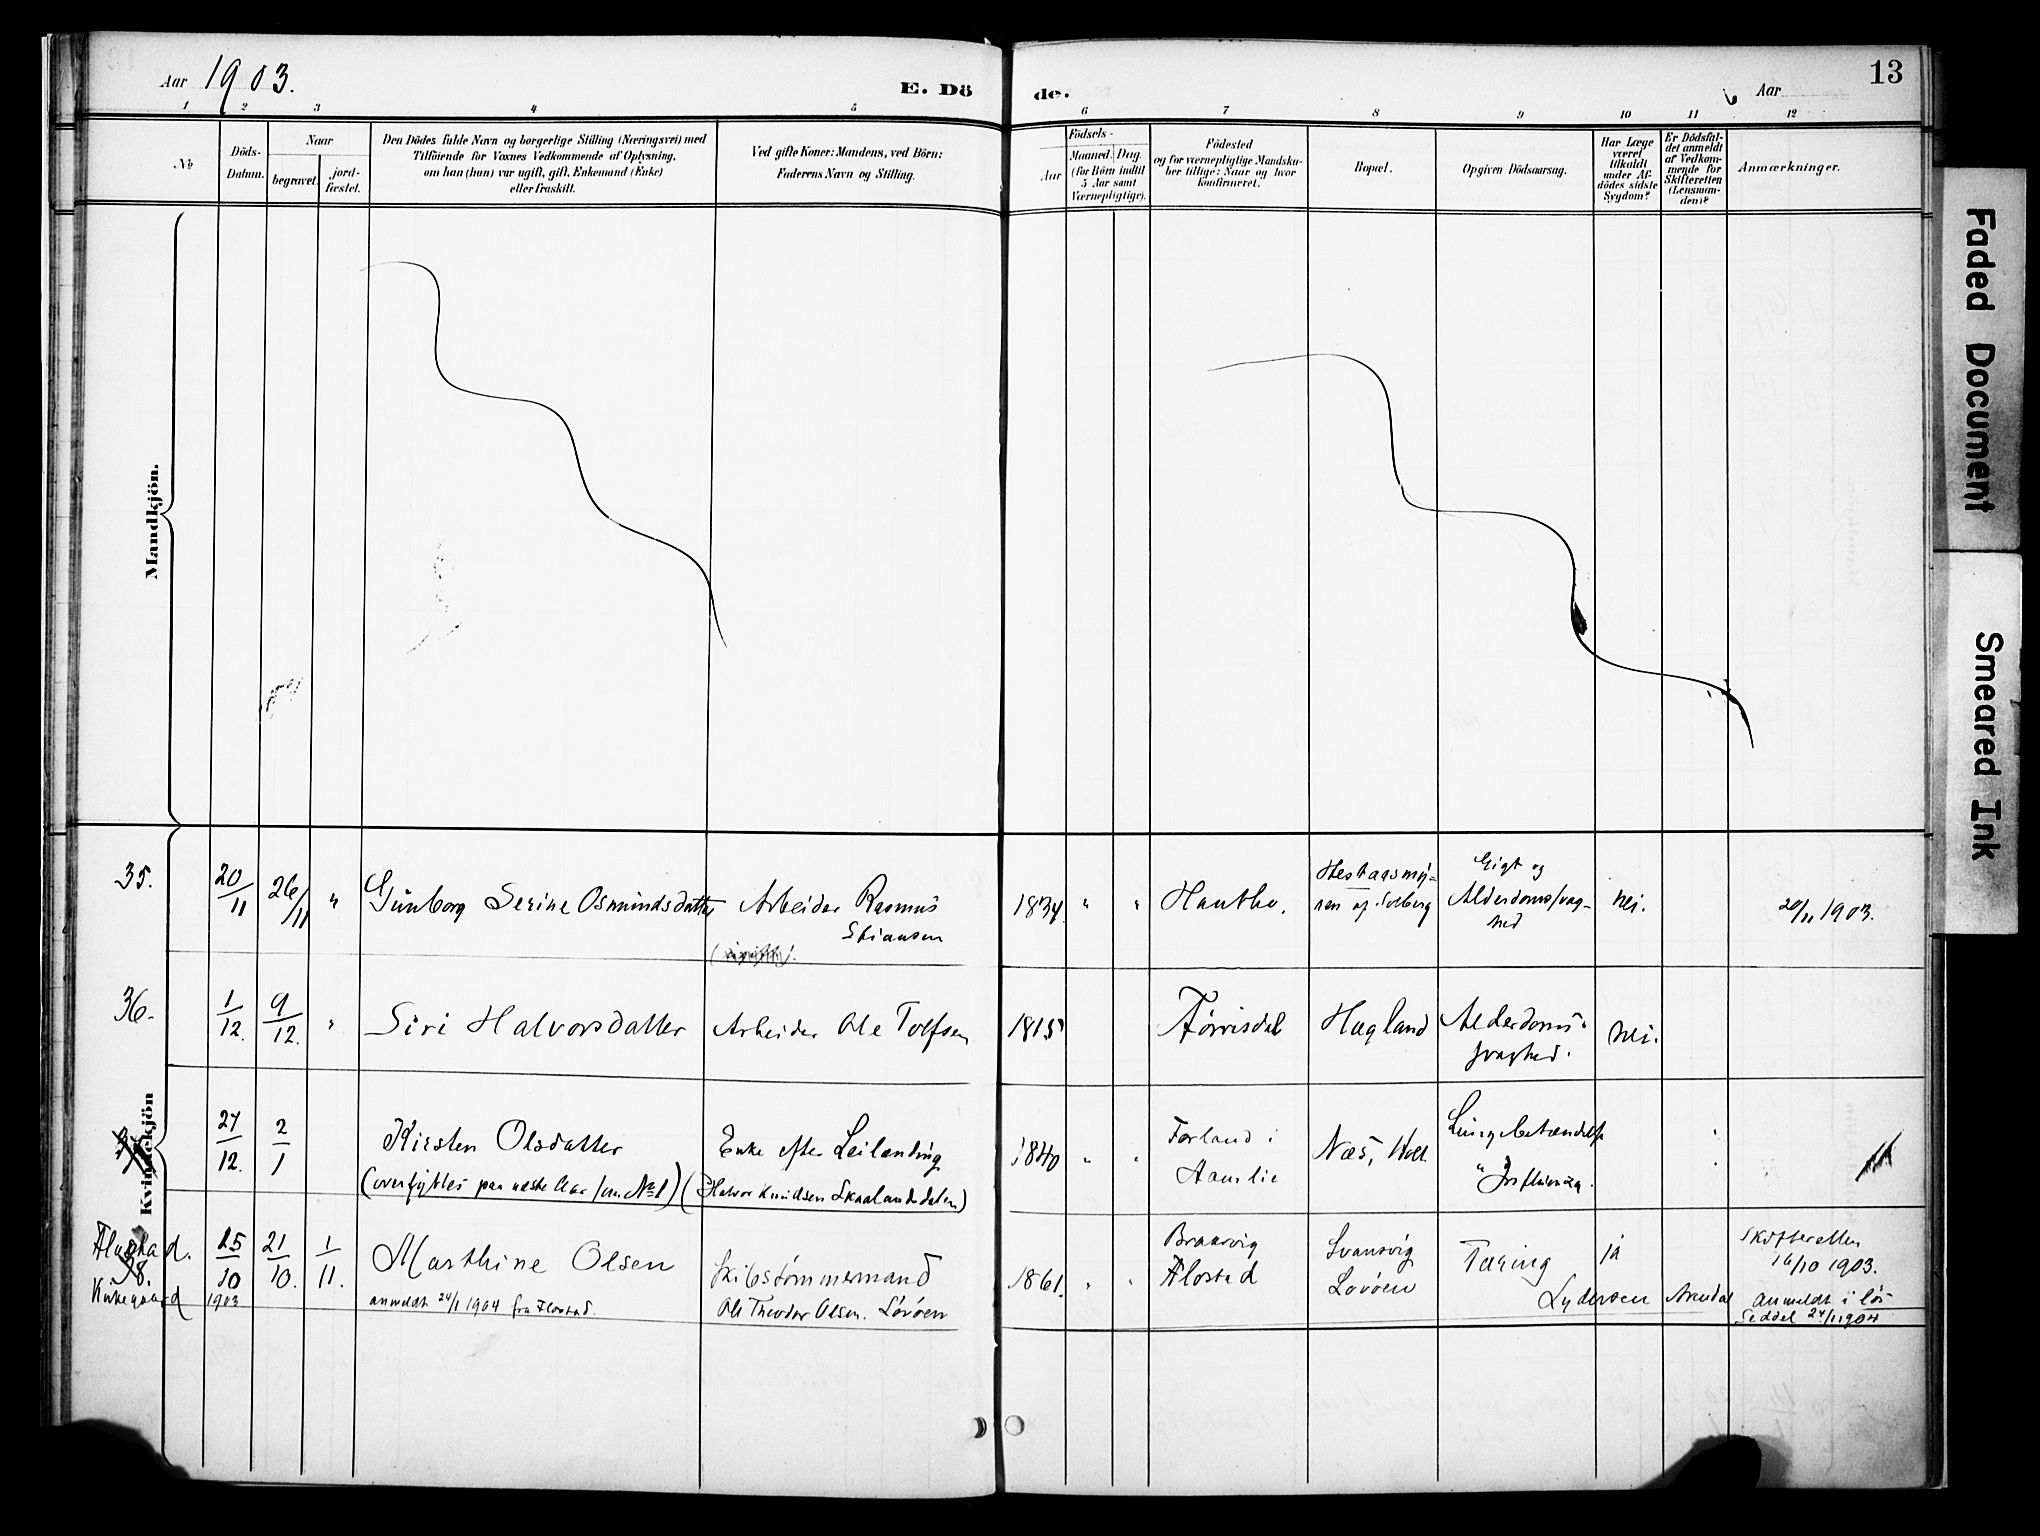 Aar 1903.
E. Dö
de.
Aar
13
1 2 3 4 5
6 7 8 9 10 11 12
№
Döds-
Datum.
Naar
begravet.
jord-
fæstet.
Den Dödes fulde Navn og borgerlige Stilling (Næringsvei) med
Tilföiende for Voxnes Vedkommende af Oplysning,
om han (hun) var ugift, gift, Enkemand (Enke)
eller fraskilt.
Ved gifte Koner: Mandens, ved Börn:
Faderens Navn og Stilling.
Födsels-
Aar
Maaned. Dag.
(for Börn indtil
5 Aar samt
Værnepligtige).
Födested
og for værnepligtige Mandsku-
ber tillige: Naar og hvor
konfirmeret.
Bopæl.
Opgiven Dödsaarsag.
Har Læge
været
tilkaldt
under Af-
dödes sidste
Sygdom?
Er Dödsfal-
det anmeldt
af Vedkom-
mende for
Skifteretten
(Lensman-
den)?
Anmærkninger.
Mandkjön.
Kvindekjön
35.
20/11
26/11
"
Gunborg Serine Osmundsdatter
Arbeider Rasmus
Stiansen
1834
"
"
Hantho.
Heståasmy-
ren af Solberg
Gigt og
Alderdomssvag-
hed
nei.
20/11 1903.
36.
1/12.
9/12.
"
Siri Halvorsdatter
Arbeider Ole Tolfsen
1815
Tørrisdal
Hagland
Alderdoms-
svaghed.
nei.
27/12.
2/1
Kirsten Olsdatter
(overflyttes paa næste Aar som № 1)
Enke efter Leilending
(Halvor Knudsen Skaalandsdalen)
1840
"
"
Forland i
Aamlie
Næs, Holt
Lungebetændelse
"Influenza.
Flostad.
38.
Kirkegaard
25/10
1903
21/10.
1/11.
Marthine Olsen
anmeldt 24/1 1904 fra Flostad.
Skibstømmermand
Ole Theodor Olsen. Løvøen
1861.
"
"
Braarvig
Flostad
Svansvig
Løvøen
Tæring
ja
Lydersen Arendal
Skifteretten
16/10 1903.
Anmeldt i løs
Seddel 24/1 1904
Faded Document
Smeared Ink